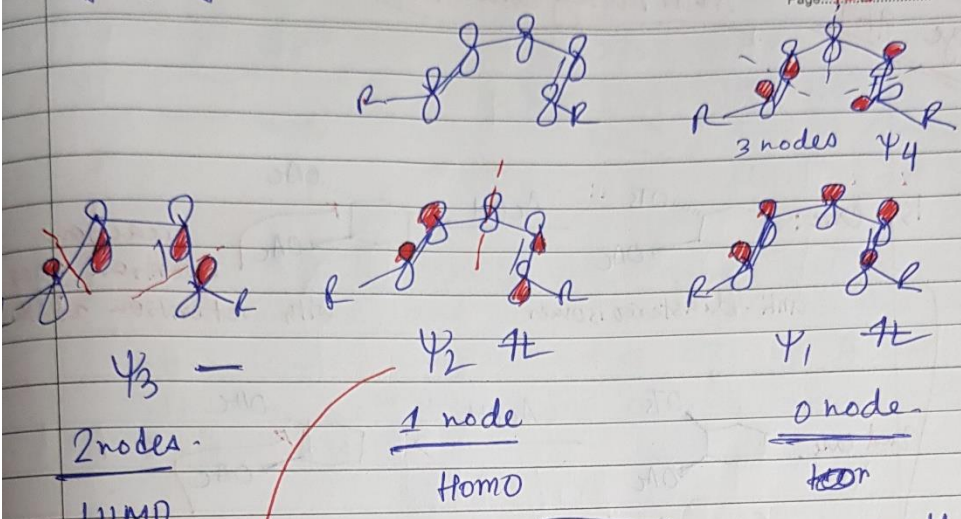 Page
R
R
R
R
3 nodes Ψ4
R
R
R
R
R
Ψ3 —
Ψ2 ⇅
Ψ1 ⇅
2 nodes.
1 node
0 node.
LUMO
HOMO